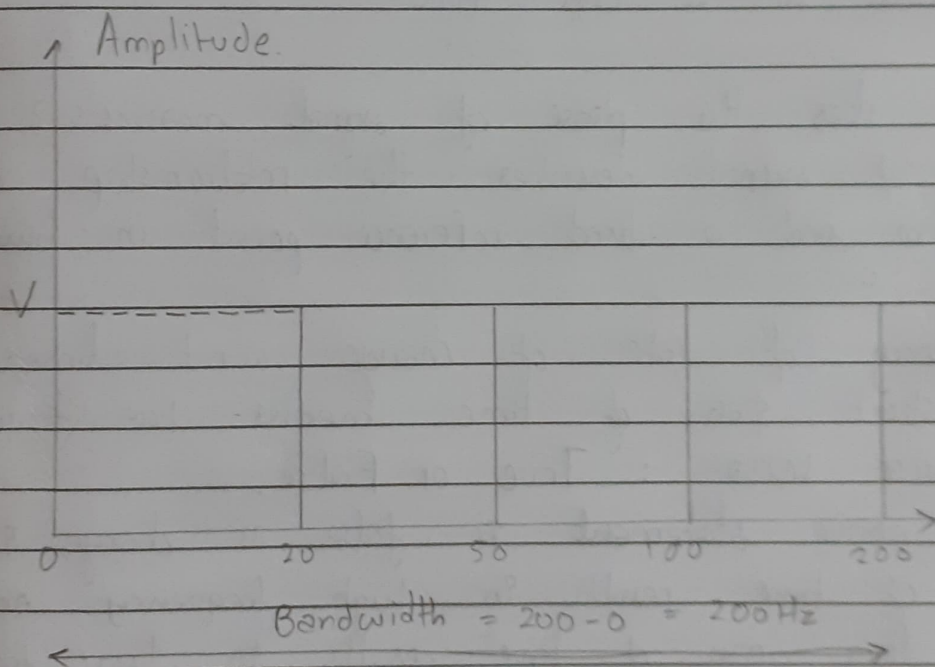 Amplitude
V
0 20 50 100 200
Bandwidth = 200-0 = 200Hz